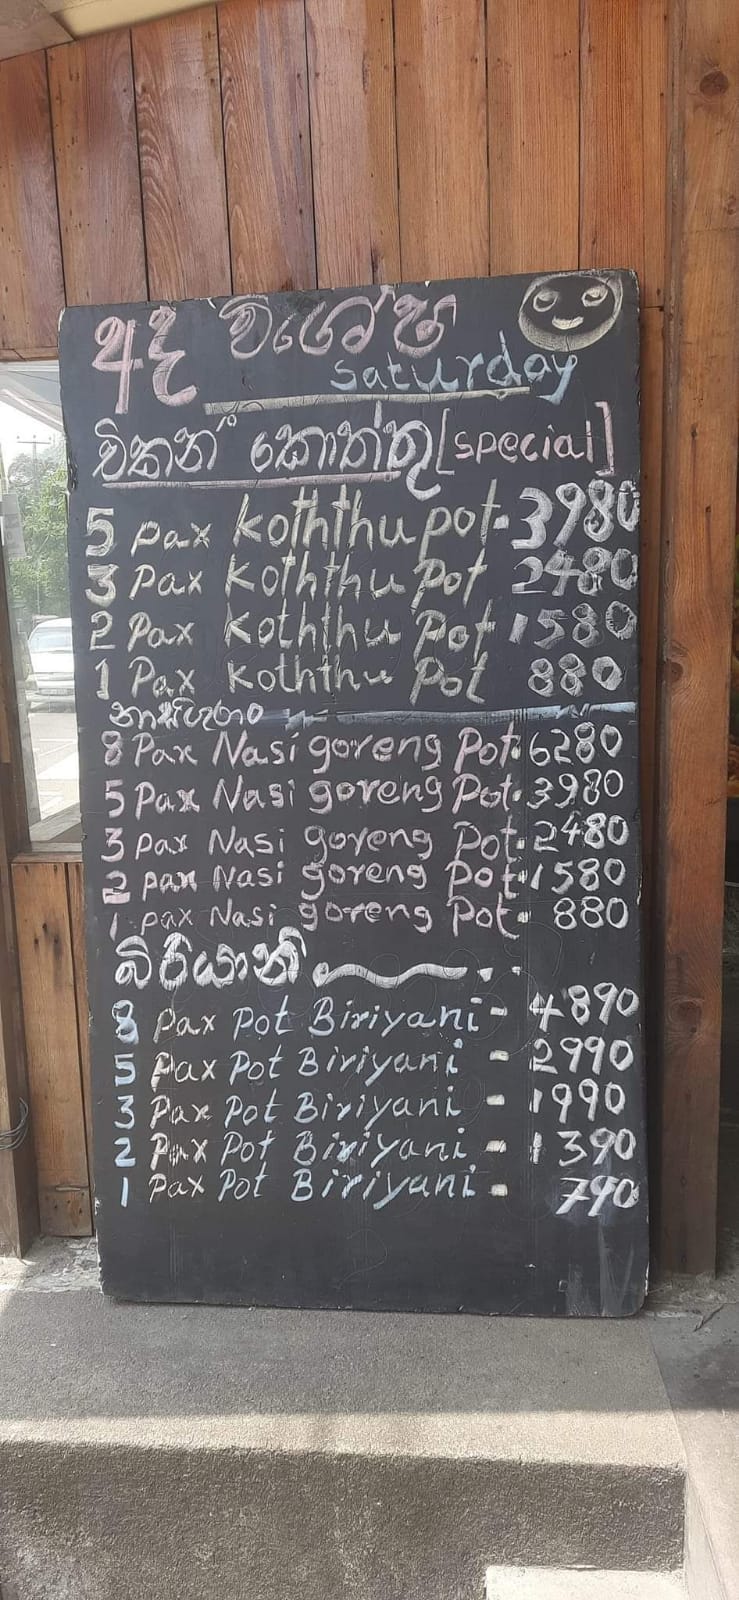 අද විශේෂ
Saturday
චිකන් කොත්තු [special]
5 pax Koththu pot - 3980
3 Pax Koththu Pot 2480
2 Pax Koththu Pot 1580
1 Pax Koththu Pot 880
නාසිගුරාං
8 Pax Nasi goreng Pot - 6280
5 Pax Nasi goreng Pot - 3980
3 pax Nasi goreng Pot - 2480
2 pax Nasi goreng Pot - 1580
1 pax Nasi goreng Pot - 880
බිරියානි
8 Pax Pot Biriyani - 4890
5 Pax Pot Biriyani - 2990
3 Pax Pot Biriyani - 1990
2 Pax Pot Biriyani - 1390
1 Pax Pot Biriyani - 790